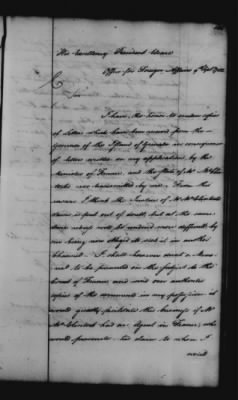 His Excellency President Weare
Office for Foreign Affairs 9th Sept 1782
Sir
I have the honor to enclose copies
of letters which have been received from the
Governor of the Island of Grenada in consequence
of letters written on my application by the
Minister of France, and the State of Mr McClin
tocks was transmitted by me. From this
I think the Justice of Mr McClintocks
claim is put out of doubt but at the same
time
being now obliged to seek it in another
Channel. I shall however send a Memo
rial to be presented on the subject to the
Court of France and send our authentic
copies of the document in my possession it
would greatly facilitate the business if
Mr McClintock had an Agent in France, who
would prosecute his claim to whom I
would